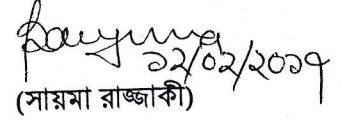 ১২/০২/২০১৭
(সায়মা রাজ্জাকী)